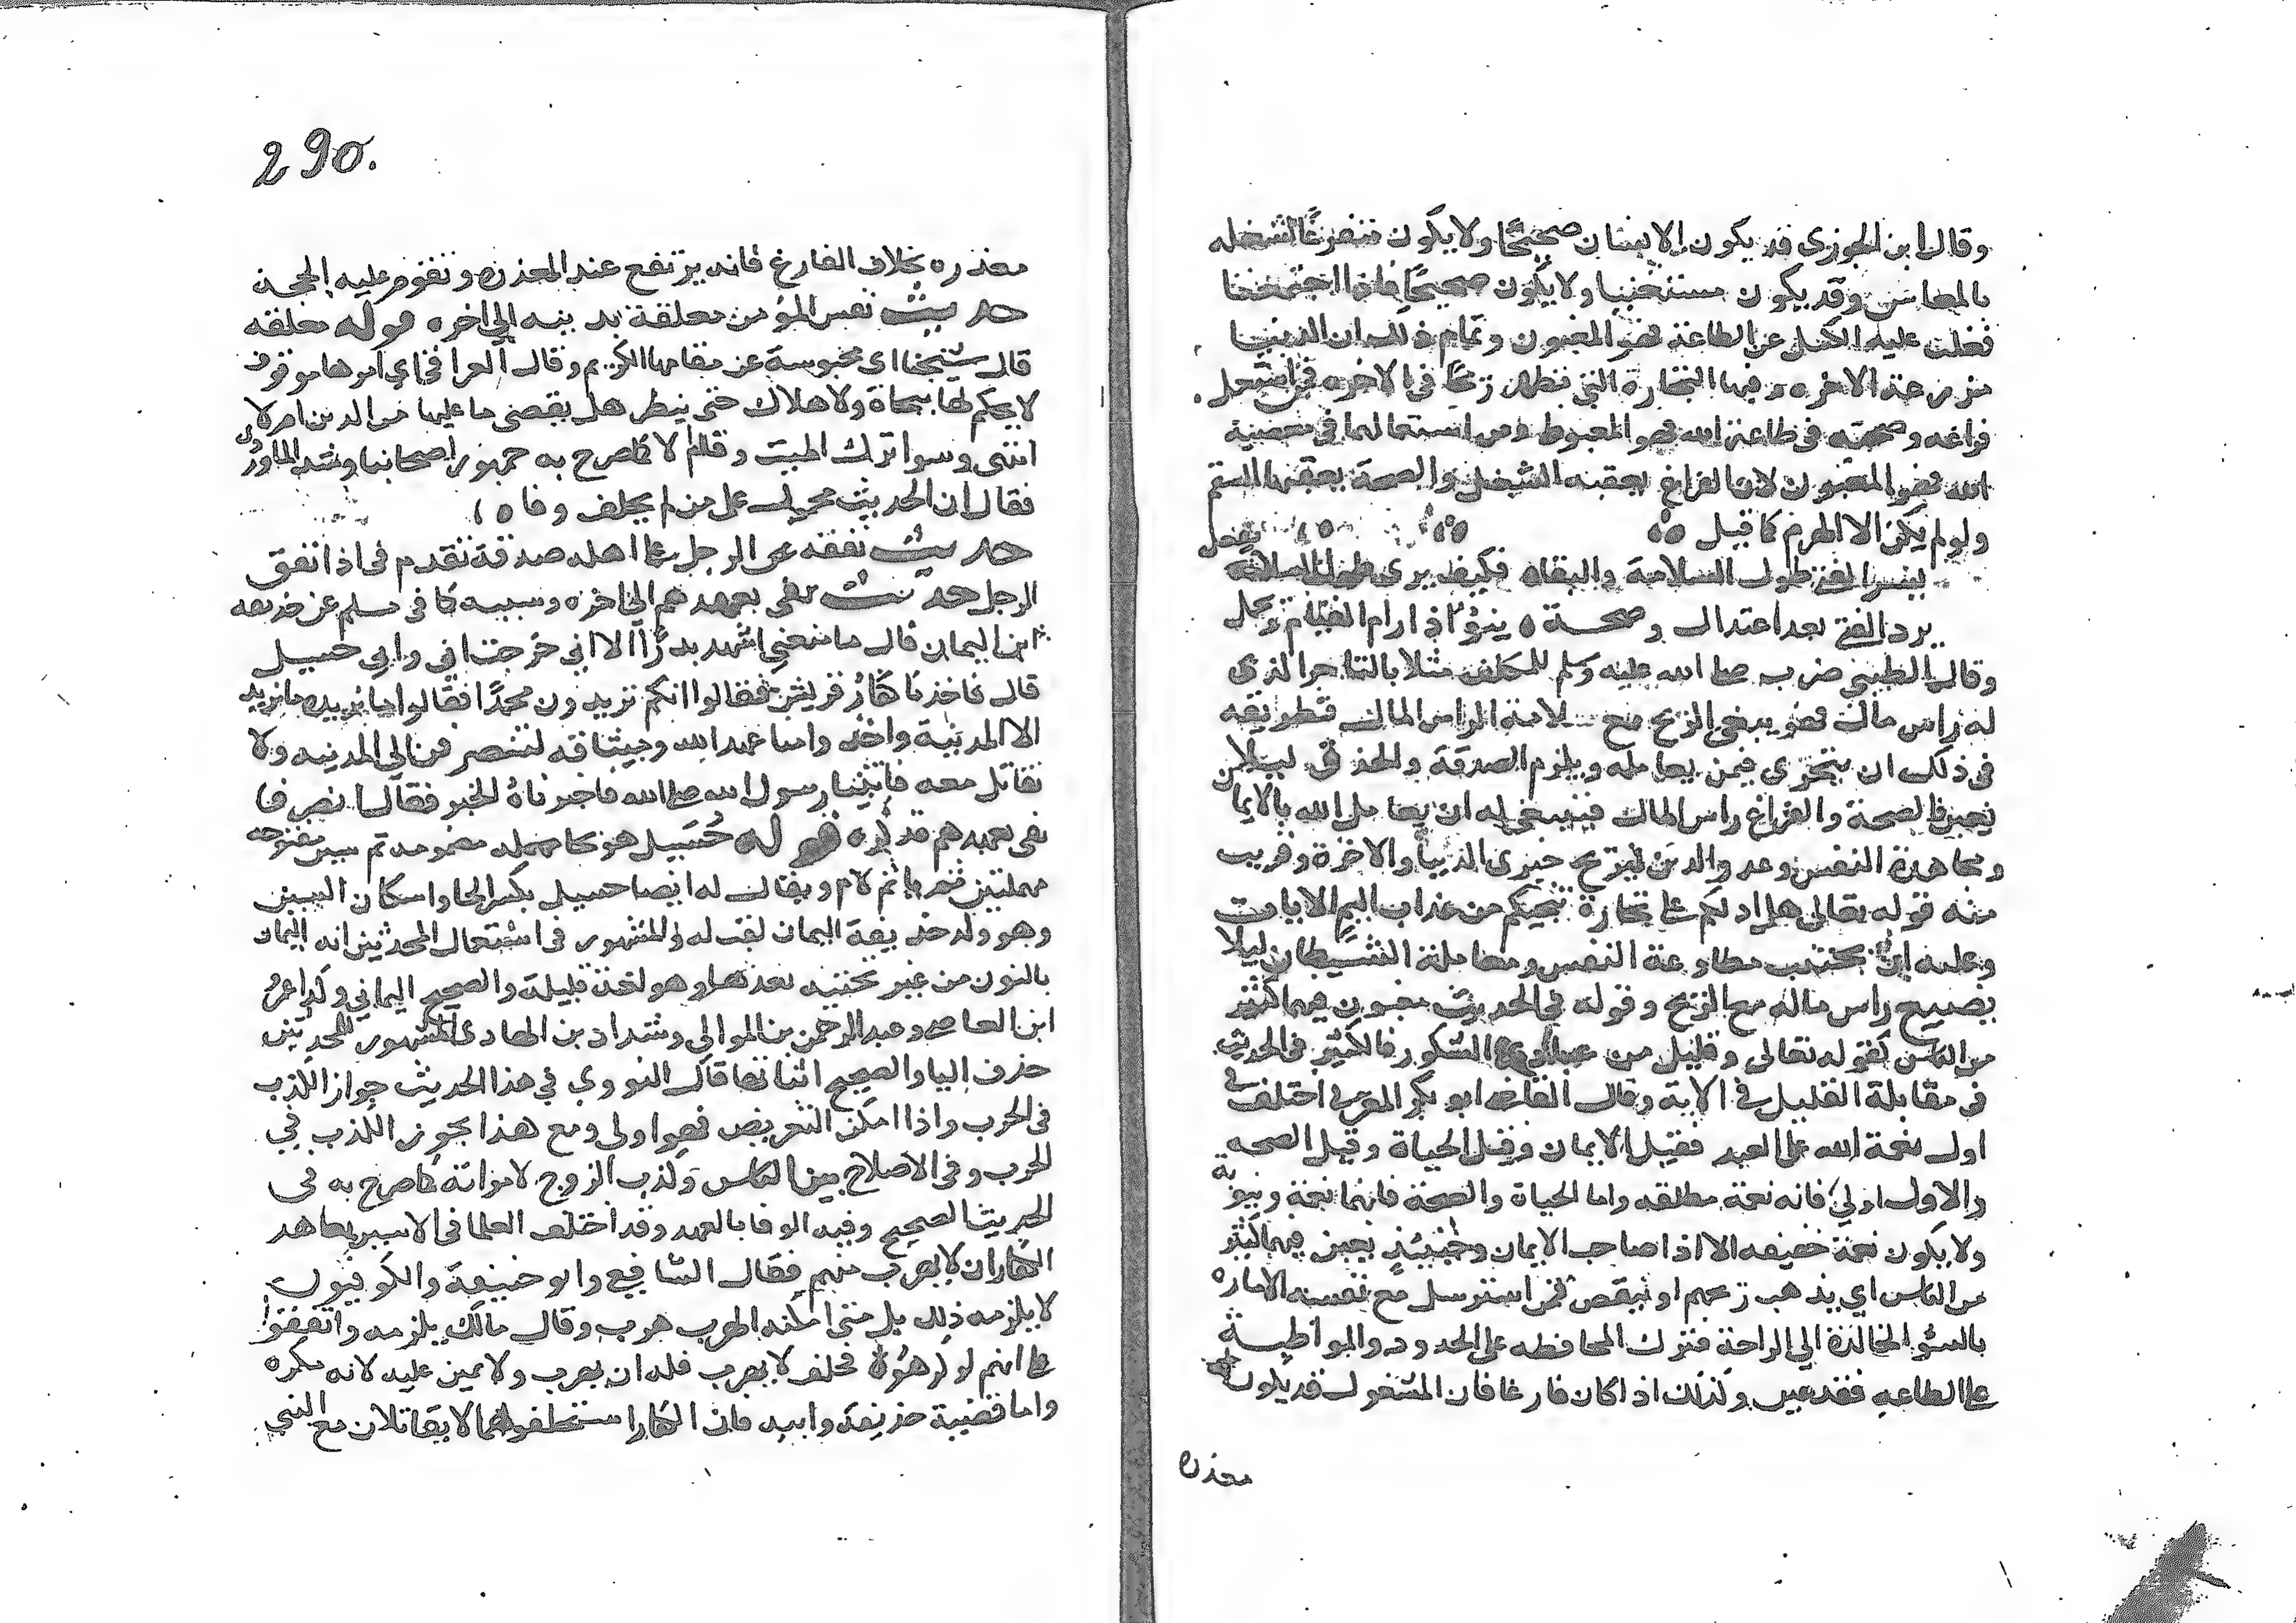 وقال ابن الجوزى قد يكون الانسان صحيحًا ولا يكون متفرغًا لشغله
بالمعاش وقد يكون مستغنيا ولا يكون صحيحًا فاذا اجتمعتا
فغلب عليه الكسل عن الطاعة فهو المغبون وتمام ذلك ان الدنيا
مزرعة الاخره وفيها التجارة التي يظهر ربحها في الاخره فمن استعمل
فراغه وصحته في طاعة الله فهو المغبوط ومن استعملهما في معصية
الله فهو المغبون لان الفراغ يعقبه الشغل والصحة يعقبها السقم
ولو لم يكن الا الهرم كما قيل
يسر الفتى طول السلامة والبقاه فكيف يرى طول السلامة يفعل
يرد الفتى بعد اعتدال وصحة ه ينوْ اذا رام القيام ويحمل
وقال الطيبي ضرب صلى الله عليه وسلم للمكلف مثلا بالتاجر الذى
له راس مال فهو يبتغي الربح مع سلامة الراس المال فطريقه
في ذلك ان يتحرى فيمن يعامله ويلزم الصدقة والحذق ليلا
يغبن فالصحة والفراغ راس المال فينبغي له ان يعامل الله بالايمان
ومجاهدة النفس وعدو الدين ليربح خيرى الدنيا والاخرة وقريب
منه قوله تعالى هل ادلكم على تجارة تنجيكم من عذاب اليم الايات
وعليه ان يجتنب مطاوعة النفس ومعاملة الشيطان ليلا
يضيع راس ماله مع الربح وقوله في الحديث مغبون فيهما كثير
من الناس كقوله تعالى وقليل من عبادي الشكور فالكثير في الحديث
في مقابلة القليل في الاية وقال القاضي ابو بكر العربي اختلف في
اول نعمة الله على العبد فقيل الايمان وقيل الحياة وقيل الصحه
والاول اولى فانه نعمة مطلقه واما الحياة والصحة فانهما نعمة دنيوية
ولا يكون نعمة حقيقه الا اذا صاحب الايمان وحينيذٍ يغبن فيهما كثير
من الناس اي يذهب ربحهم او ينقص فمن استرسل مع نفسه الاماره
بالسوْ الخالدة الي الراحة فترك المحافظه على الحدود والمواظبة
على الطاعه فقد غبن وكذلك اذا كان فارغا فان المشغول قد يكون له
معذرة
290.
معذره بخلاف الفارغ فانه يرتفع عنه المعذره وتقوم عليه الحجة
حديث نفس المؤمن معلقة بدينه الى اخره قوله معلقه
قال شيخنا اى محبوسة عن مقامها الكريم وقال العراقي اي امرها موقوف
لا يحكم لها بنجاة ولا هلاك حتى ينظر هل يقضى ما عليها من الدين ام لا
انتهى وسوا ترك الميت وفا ام لا كما صرح به جمهور اصحابنا وشذ الماوردى
فقال ان الحديث محمول على من لم يخلف وفا ه
حديث نفقه على الرجل على اهله صدقة تقدم في اذا انفق
الرجل حديث نفى بعهدهم الى اخره وسببه كما في مسلم عن حذيفه
ابن اليمان قال ما منعني اشهد بدرًا الا اني خرجت انى وابي حسيل
قال فاخذنا كفار قريش فقالوا انكم تريدون محمدًا فقالوا ما نريده ما نريد
الا المدينة واخذوا منا عهد الله وميثاقه لننصرفن الى المدينه ولا
نقاتل معه فاتينا رسول الله صلى الله فاخبرناهُ الخبر فقال انصرفا
نفى بعهدهم فذكره قوله حُسَيل هو بحا مهمله مضمومه ثم سين مفتوحه
مهملتين ثم يا ثم لام ويقال له ايضا حسيل بكسر الحا واسكان السين
وهو ولد حذيفة اليمان لقب له والمشهور في استعمال المحدثين انه اليمان
بالنون من غير تحتيه بعدها وهو لغة قليلة والصحيح اليماني وكذا عمرو
ابن العاص وعبد الرحمن بن الموالي وشداد بن الهادى المشهور للمحدثين
حذف اليا والصحيح اثباتها قال النووي في هذا الحديث جواز الكذب
في الحرب واذا امكن التعريض فهو اولى ومع هذا يجوز الكذب في
الحرب وفي الاصلاح بين الناس وكذب الزوج لامراته كما صرح به في
الحديث الصحيح وفيه الوفا بالعهد وقد اختلف العلما في الاسير يعاهد
الكفار ان لا يهرب منهم فقال الشافعي وابو حنيفة والكوفيون
لا يلزمه ذلك بل متى امكنه الهرب هرب وقال مالك يلزمه واتفقوا
على انهم لو كرهوْه فحلف لا يهرب فله ان يهرب ولا يمين عليه لانه مكره
واما قضية حذيفة وابيه فان الكفار استحلفوهما لا يقاتلان مع النبي